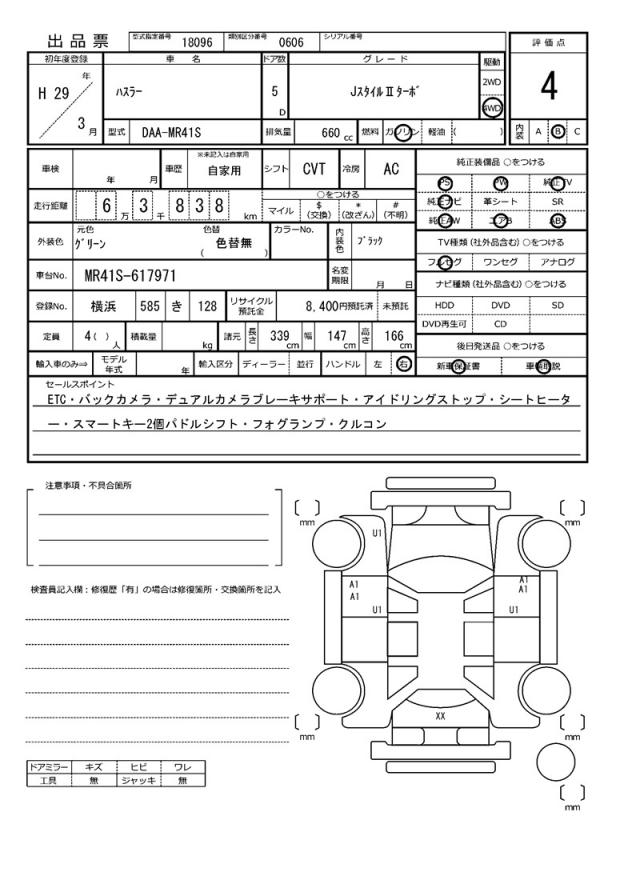 出品票 型式指定番号 18096 類別区分番号 0606 シリアル番号
評価点
4
内装 A B C
初年度登録 車名 ドア数 グレード 駆動
H 29 年 3 月 ハスラー 5 D JスタイルⅡターボ 2WD 4WD
型式 DAA-MR41S 排気量 660 cc 燃料 ガソリン 軽油 ( )
車検 年 月 車歴 ※未記入は自家用 自家用 シフト CVT 冷房 AC
走行距離 6 万 3 千 8 3 8 km ○をつける
マイル $ (交換) * (改ざん) # (不明)
外装色 元色 グリーン 色替 色替無 ( ) カラーNo. 内装色 ブラック
車台No. MR41S-617971 名変期限 月 日
登録No. 横浜 585 き 128 リサイクル預託金 8,400円預託済 未預託
定員 4( ) 人 積載量 kg 諸元 長さ 339 cm 幅 147 cm 高さ 166 cm
輸入車のみ⇒ モデル年式 年 輸入区分 ディーラー 並行 ハンドル 左 右
純正装備品 ○をつける
PS PW 純正TV
純正ナビ 革シート SR
純正AW エアB ABS
TV種類(社外品含む)○をつける
フルセグ ワンセグ アナログ
ナビ種類(社外品含む)○をつける
HDD DVD SD
DVD再生可 CD
後日発送品 ○をつける
新車保証書 車輌取説
セールスポイント
ETC・バックカメラ・デュアルカメラブレーキサポート・アイドリングストップ・シートヒータ
ー・スマートキー2個パドルシフト・フォグランプ・クルコン
注意事項・不具合箇所
検査員記入欄:修復歴「有」の場合は修復箇所・交換箇所を記入
ドアミラー キズ ヒビ ワレ
工具 無 ジャッキ 無
[ ] mm
[ ] mm
U1
A1
A1
U1
A1
A1
U1
XX
[ ] mm
[ ] mm
[ ] mm